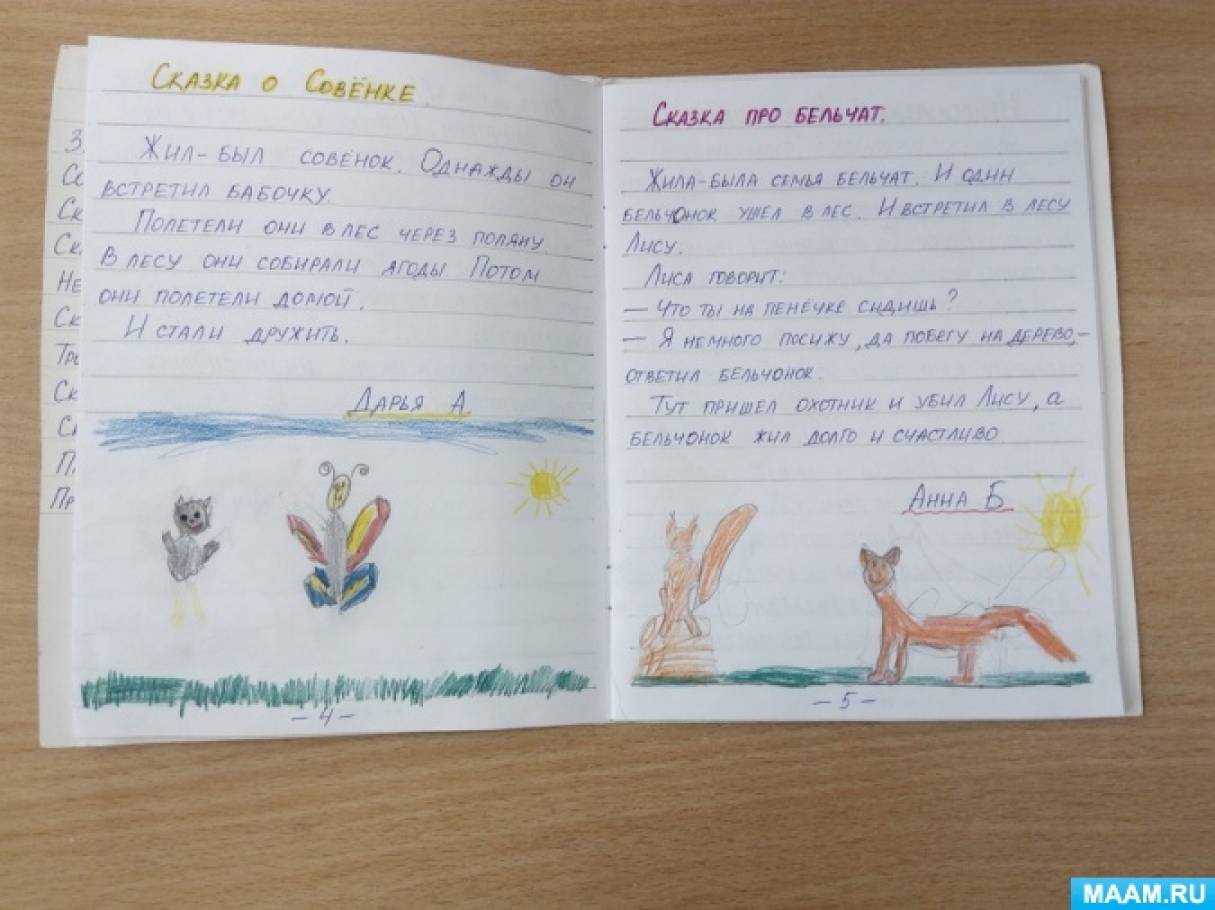 Сказка о Совёнке
Жил-был совёнок. Однажды он
встретил бабочку.
Полетели они в лес через поляну.
В лесу они собирали ягоды Потом
они полетели домой.
И стали дружить.
Дарья А
- 4 -
Сказка про бельчат.
Жила-была семья бельчат. И один
бельчонок ушёл в лес. И встретил в лесу
Лису.
Лиса говорит:
— Что ты на пенёчке сидишь?
— Я немного посижу, да побегу на дерево,-
ответил бельчонок.
Тут пришёл охотник и убил Лису, а
бельчонок жил долго и счастливо
Анна Б
- 5 -
MAAM.RU